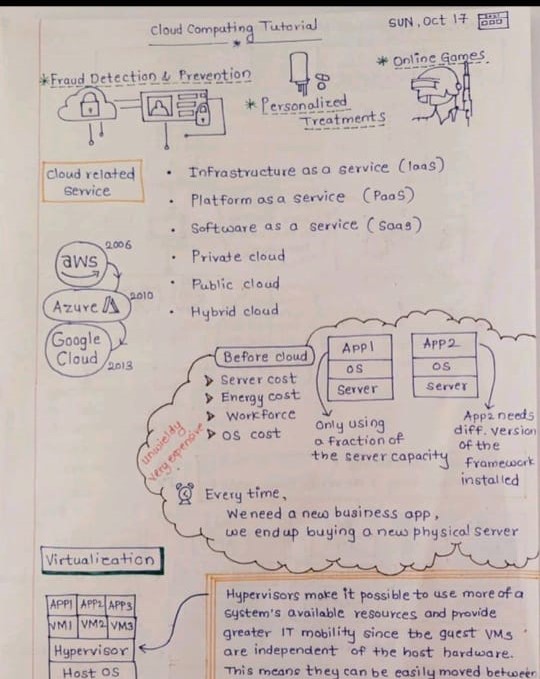 Cloud Computing Tutorial
SUN, Oct 17
*Fraud Detection & Prevention
* Personalized
Treatments
* Online Games
Cloud related
Service
• Infrastructure as a service (Iaas)
• Platform as a service (PaaS)
• Software as a service (Saas)
• Private cloud
• Public cloud
• Hybrid cloud
aws
2006
Azure
2010
Google
Cloud
2013
Before cloud
Server cost
Energy cost
Workforce
OS cost
unwieldy
very expensive
APP1
OS
Server
APP2
OS
Server
Only using
a fraction of
the server capacity
App2 needs
diff. version
of the
framework
installed
Every time,
We need a new business app,
we end up buying a new physical server
Virtualization
APP1 APP2 APP3
VM1 VM2 VM3
Hypervisor
Host OS
Hypervisors make it possible to use more of a
system's available resources and provide
greater IT mobility since the guest VMs
are independent of the host hardware.
This means they can be easily moved between